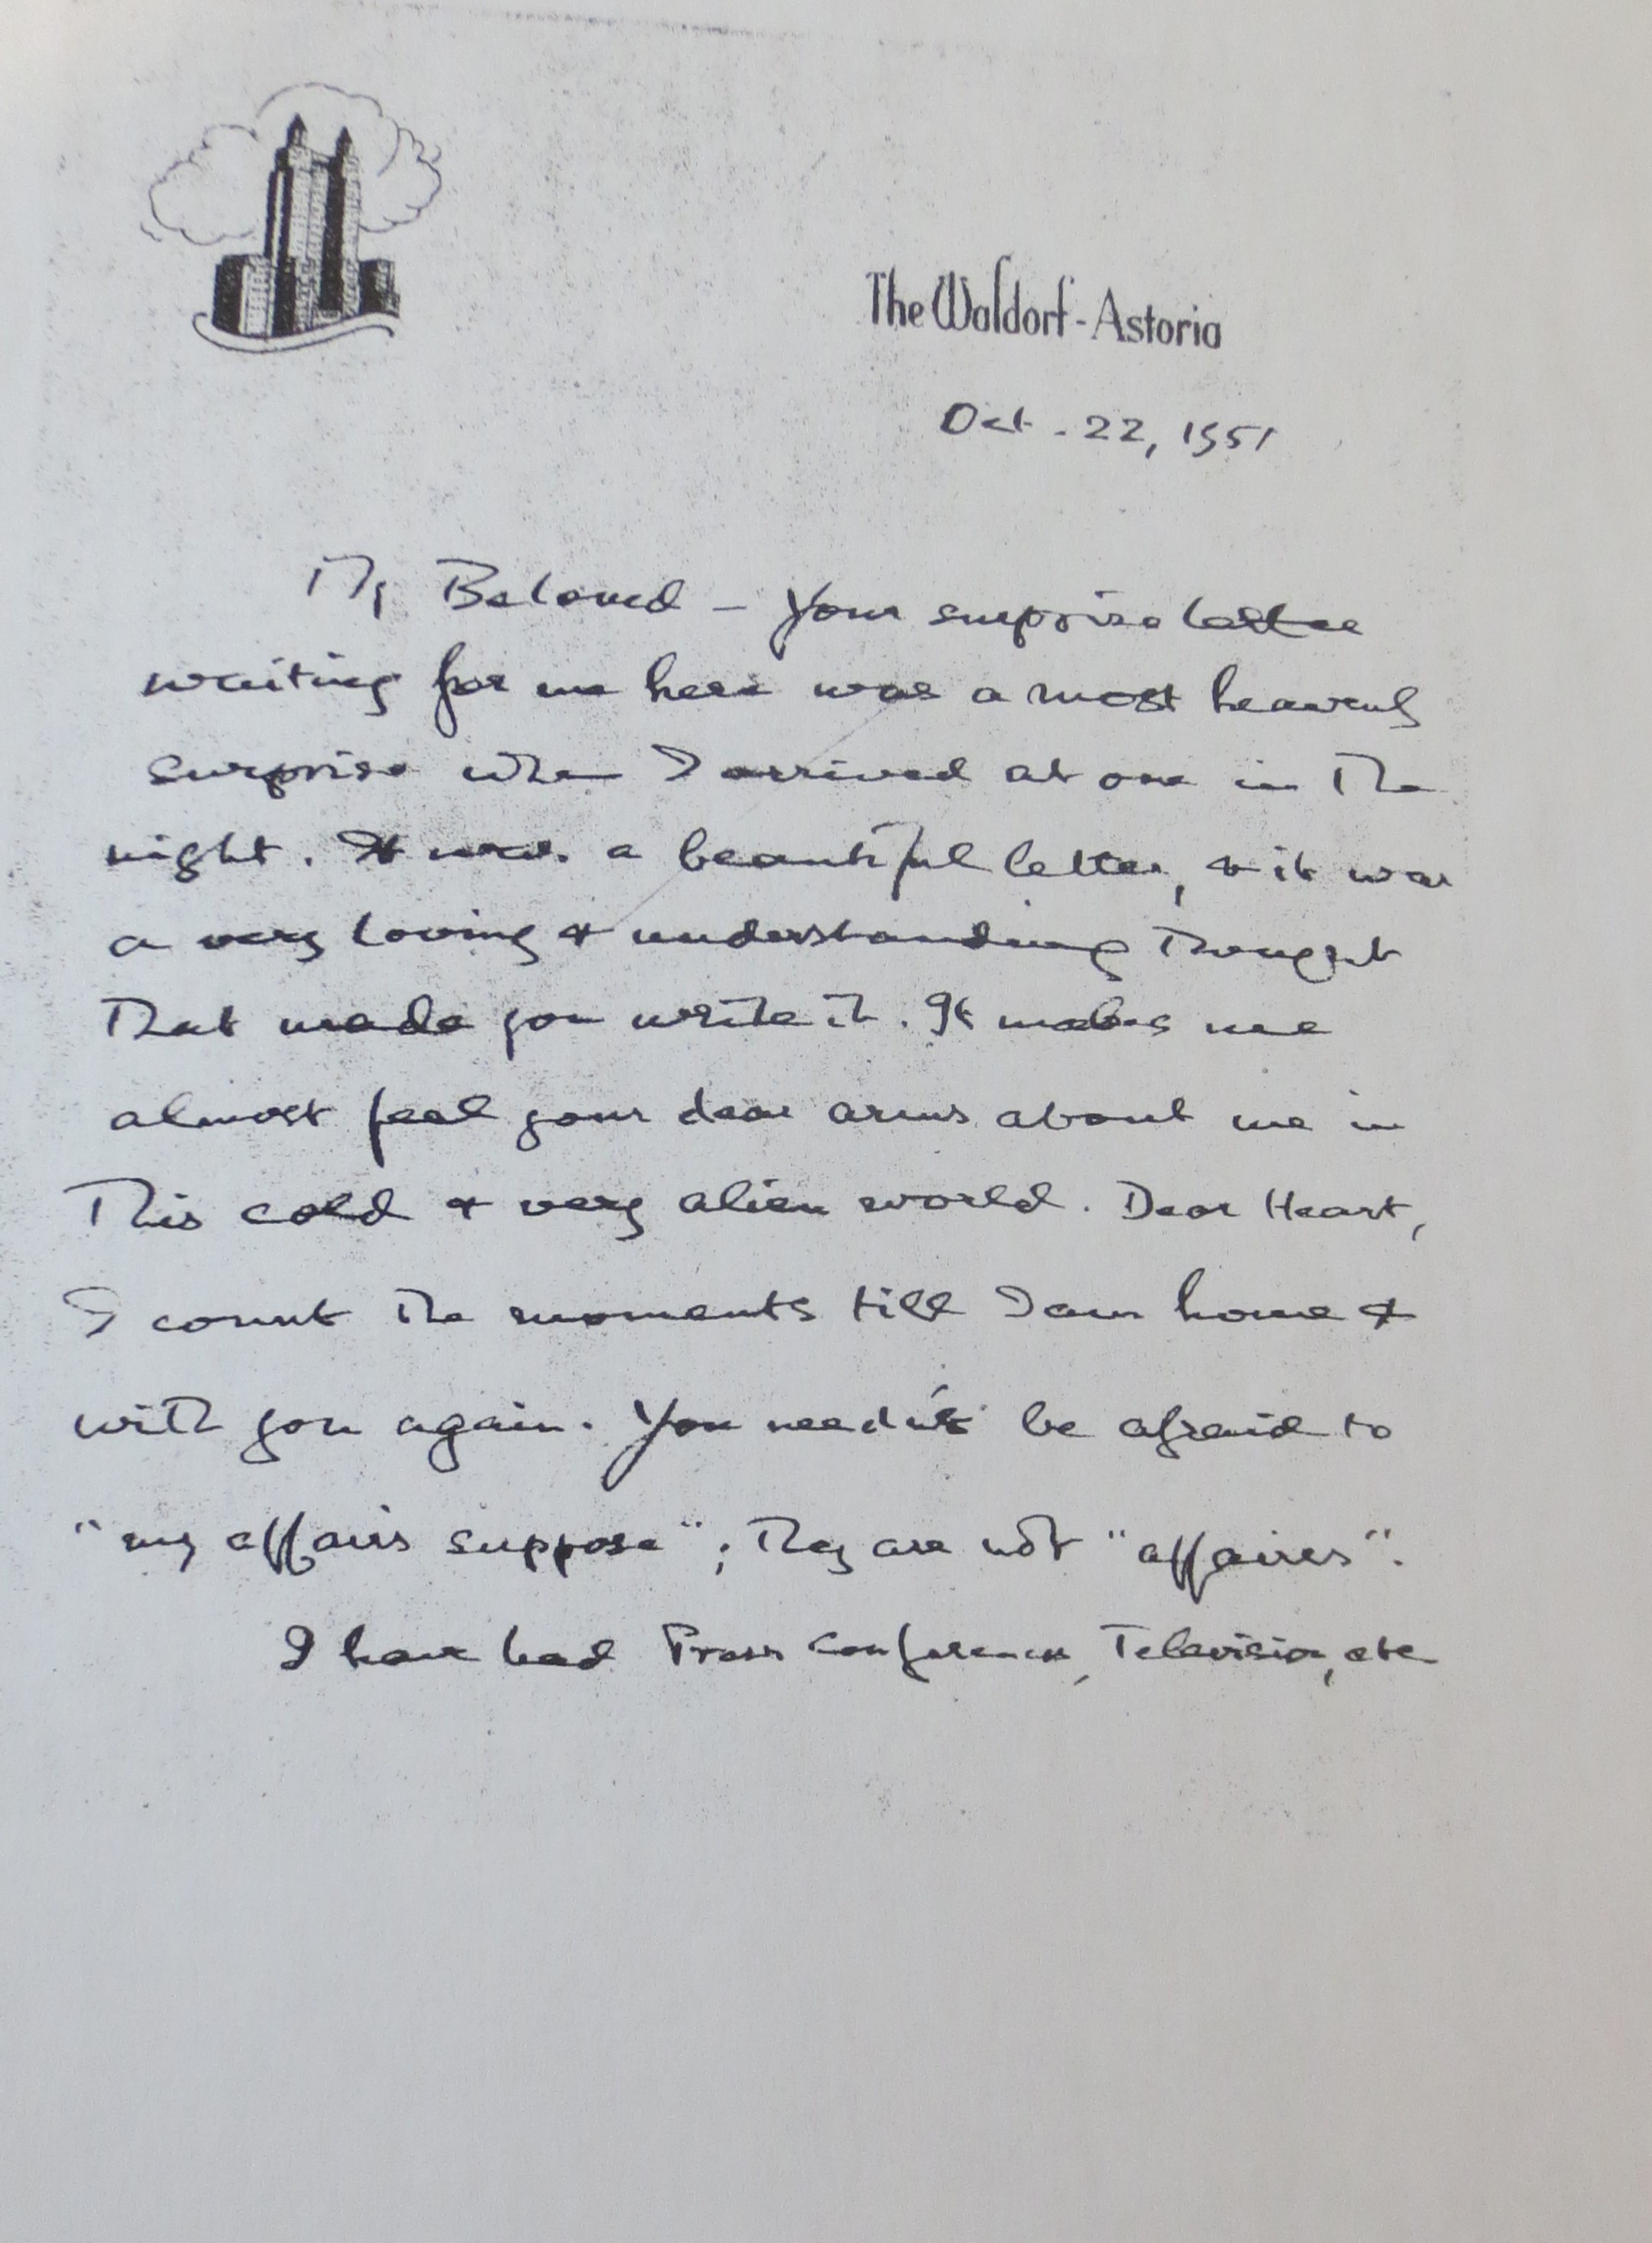 The Waldorf-Astoria
Oct. 22, 1951
My Beloved - Your surprise letter
waiting for me here was a most heavenly
surprise when I arrived at one in the
night. It was a beautiful letter, & it was
a very loving & understanding thought
that made you write it. It makes me
almost feel your dear arms about me in
this cold & very alien world. Dear Heart,
I count the moments till I am home &
with you again. You needn't be afraid to
"my affairs suppose"; they are not "affaires".
I have had Press Conferences, Television, etc